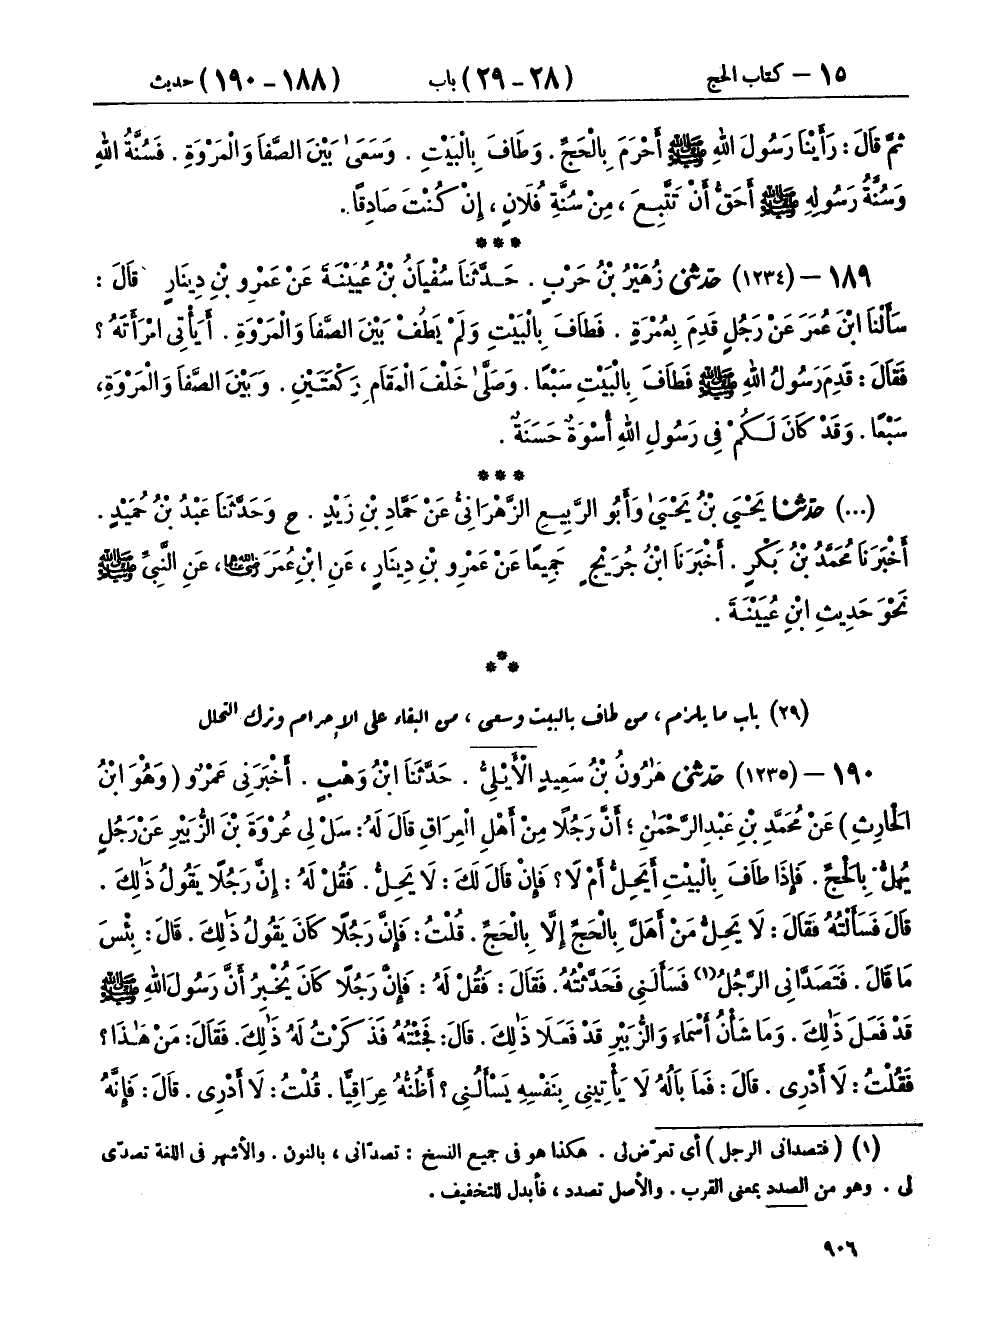 ١٥ – كتاب الحج (٢٨ – ٢٩) باب (١٨٨ – ١٩٠) حديث
ثُمَّ قَالَ: رَأَيْنَا رَسُولَ اللهِ ﷺ أَحْرَمَ بِالْحَجِّ. وَطَافَ بِالْبَيْتِ. وَسَعَىٰ بَيْنَ الصَّفَا وَالْمَرْوَةِ. فَسُنَّةُ اللهِ
وَسُنَّةُ رَسُولِهِ ﷺ أَحَقُّ أَنْ تَتَّبِعَ، مِنْ سُنَّةِ فُلَانٍ، إِنْ كُنْتَ صَادِقًا.
***
١٨٩ – (١٢٣٤) حَدَّثَنِي زُهَيْرُ بْنُ حَرْبٍ. حَدَّثَنَا سُفْيَانُ بْنُ عُيَيْنَةَ عَنْ عَمْرِو بْنِ دِينَارٍ قَالَ:
سَأَلْنَا ابْنَ عُمَرَ عَنْ رَجُلٍ قَدِمَ بِعُمْرَةٍ. فَطَافَ بِالْبَيْتِ وَلَمْ يَطُفْ بَيْنَ الصَّفَا وَالْمَرْوَةِ. أَيَأْتِي امْرَأَتَهُ؟
فَقَالَ: قَدِمَ رَسُولُ اللهِ ﷺ فَطَافَ بِالْبَيْتِ سَبْعًا. وَصَلَّىٰ خَلْفَ الْمَقَامِ رَكْعَتَيْنِ. وَبَيْنَ الصَّفَا وَالْمَرْوَةِ،
سَبْعًا. وَقَدْ كَانَ لَكُمْ فِي رَسُولِ اللهِ أُسْوَةٌ حَسَنَةٌ.
***
(...) حَدَّثَنَا يَحْيَىٰ بْنُ يَحْيَىٰ وَأَبُو الرَّبِيعِ الزَّهْرَانِيُّ عَنْ حَمَّادِ بْنِ زَيْدٍ. ح وَحَدَّثَنَا عَبْدُ بْنُ حُمَيْدٍ.
أَخْبَرَنَا مُحَمَّدُ بْنُ بَكْرٍ. أَخْبَرَنَا ابْنُ جُرَيْجٍ جَمِيعًا عَنْ عَمْرِو بْنِ دِينَارٍ، عَنِ ابْنِ عُمَرَ رضي الله عنهما، عَنِ النَّبِيِّ ﷺ
نَحْوَ حَدِيثِ ابْنِ عُيَيْنَةَ.
***
(٢٩) باب ما يلزم، من طاف بالبيت وسعى، من البقاء على الإحرام وترك التحلل
١٩٠ – (١٢٣٥) حَدَّثَنِي هَٰرُونُ بْنُ سَعِيدٍ الْأَيْلِيُّ. حَدَّثَنَا ابْنُ وَهْبٍ. أَخْبَرَنِي عَمْرٌو (وَهُوَ ابْنُ
الْحَارِثِ) عَنْ مُحَمَّدِ بْنِ عَبْدِ الرَّحْمَٰنِ؛ أَنَّ رَجُلًا مِنْ أَهْلِ الْعِرَاقِ قَالَ لَهُ: سَلْ لِي عُرْوَةَ بْنَ الزُّبَيْرِ عَنْ رَجُلٍ
يُهِلُّ بِالْحَجِّ. فَإِذَا طَافَ بِالْبَيْتِ أَيَحِلُّ أَمْ لَا؟ فَإِنْ قَالَ لَكَ: لَا يَحِلُّ. فَقُلْ لَهُ: إِنَّ رَجُلًا يَقُولُ ذَٰلِكَ.
قَالَ فَسَأَلْتُهُ فَقَالَ: لَا يَحِلُّ مَنْ أَهَلَّ بِالْحَجِّ إِلَّا بِالْحَجِّ. قُلْتُ: فَإِنَّ رَجُلًا كَانَ يَقُولُ ذَٰلِكَ. قَالَ: بِئْسَ
مَا قَالَ. فَتَصَدَّانِي الرَّجُلُ(١) فَسَأَلَنِي فَحَدَّثْتُهُ. فَقَالَ: فَقُلْ لَهُ: فَإِنَّ رَجُلًا كَانَ يُخْبِرُ أَنَّ رَسُولَ اللهِ ﷺ
قَدْ فَعَلَ ذَٰلِكَ. وَمَا شَأْنُ أَسْمَاءَ وَالزُّبَيْرِ قَدْ فَعَلَا ذَٰلِكَ. قَالَ: فَجِئْتُهُ فَذَكَرْتُ لَهُ ذَٰلِكَ. فَقَالَ: مَنْ هَٰذَا؟
فَقُلْتُ: لَا أَدْرِي. قَالَ: فَمَا بَالُهُ لَا يَأْتِينِي بِنَفْسِهِ يَسْأَلُنِي؟ أَظُنُّهُ عِرَاقِيًّا. قُلْتُ: لَا أَدْرِي. قَالَ: فَإِنَّهُ
(١) (فتصدانى الرجل) أى تعرّض لى. هكذا هو فى جميع النسخ: تصدّانى، بالنون. والأشهر فى اللغة تصدّى
لى. وهو من الصدد بمعنى القرب. والأصل تصدد، فأبدل للتخفيف.
٩٠٦